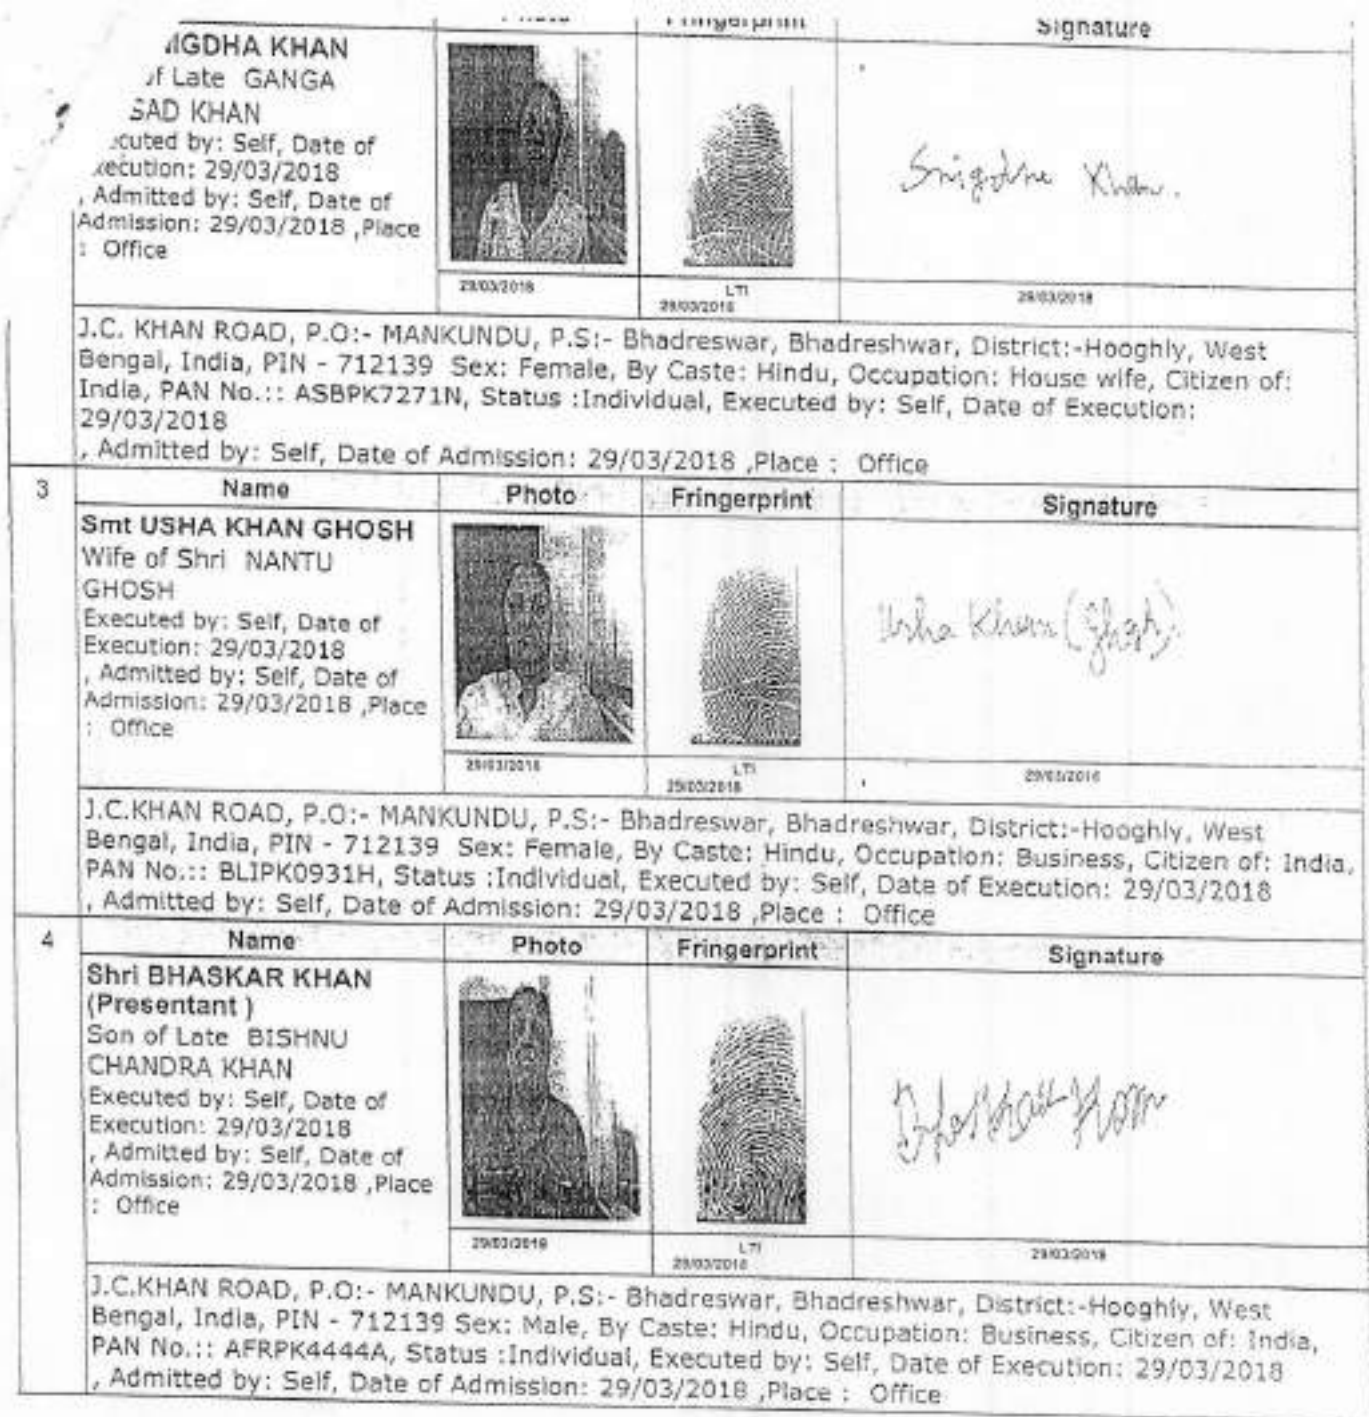 Signature
IGDHA KHAN
of Late GANGA
SAD KHAN
ecuted by: Self, Date of
xecution: 29/03/2018
, Admitted by: Self, Date of
Admission: 29/03/2018 ,Place
: Office
Snigdha Khan.
29/03/2018
LTI
29/03/2018
29/03/2018
J.C. KHAN ROAD, P.O:- MANKUNDU, P.S:- Bhadreswar, Bhadreshwar, District:-Hooghly, West
Bengal, India, PIN - 712139 Sex: Female, By Caste: Hindu, Occupation: House wife, Citizen of:
India, PAN No.:: ASBPK7271N, Status :Individual, Executed by: Self, Date of Execution:
29/03/2018
, Admitted by: Self, Date of Admission: 29/03/2018 ,Place : Office
3 Name Photo Fringerprint Signature
Smt USHA KHAN GHOSH
Wife of Shri NANTU
GHOSH
Executed by: Self, Date of
Execution: 29/03/2018
, Admitted by: Self, Date of
Admission: 29/03/2018 ,Place
: Office
Usha Khan (Ghosh)
29/03/2018
LTI
29/03/2018
29/03/2018
J.C.KHAN ROAD, P.O:- MANKUNDU, P.S:- Bhadreswar, Bhadreshwar, District:-Hooghly, West
Bengal, India, PIN - 712139 Sex: Female, By Caste: Hindu, Occupation: Business, Citizen of: India,
PAN No.:: BLIPK0931H, Status :Individual, Executed by: Self, Date of Execution: 29/03/2018
, Admitted by: Self, Date of Admission: 29/03/2018 ,Place : Office
4 Name Photo Fringerprint Signature
Shri BHASKAR KHAN
(Presentant )
Son of Late BISHNU
CHANDRA KHAN
Executed by: Self, Date of
Execution: 29/03/2018
, Admitted by: Self, Date of
Admission: 29/03/2018 ,Place
: Office
Bhaskar Khan
29/03/2018
LTI
29/03/2018
29/03/2018
J.C.KHAN ROAD, P.O:- MANKUNDU, P.S:- Bhadreswar, Bhadreshwar, District:-Hooghly, West
Bengal, India, PIN - 712139 Sex: Male, By Caste: Hindu, Occupation: Business, Citizen of: India,
PAN No.:: AFRPK4444A, Status :Individual, Executed by: Self, Date of Execution: 29/03/2018
, Admitted by: Self, Date of Admission: 29/03/2018 ,Place : Office